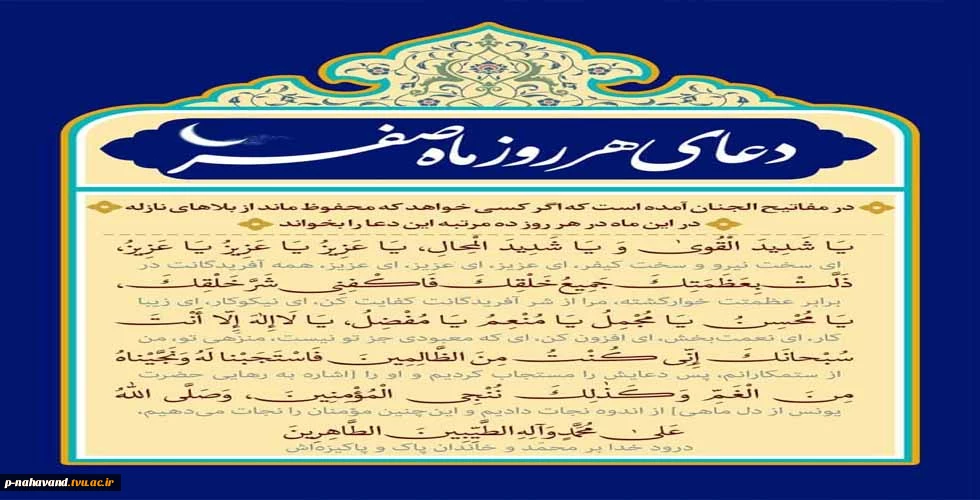 دعای هر روز ماه صفر
در مفاتیح الجنان آمده است که اگر کسی خواهد که محفوظ ماند از بلاهای نازله
در این ماه در هر روز ده مرتبه این دعا را بخواند
يَا شَدِيدَ الْقُوىٰ وَ يَا شَدِيدَ الْمِحالِ، يَا عَزِيزُ يَا عَزِيزُ يَا عَزِيزُ،
ای سخت نیرو و سخت کیفر، ای عزیز، ای عزیز، ای عزیز، همه آفریدگانت در
ذَلَّتْ بِعَظَمَتِكَ جَمِيعُ خَلْقِكَ فَاكْفِنِي شَرَّ خَلْقِكَ،
برابر عظمتت خوارگشته، مرا از شر آفریدگانت کفایت کن، ای نیکوکار، ای زیبا
يَا مُحْسِنُ يَا مُجْمِلُ يَا مُنْعِمُ يَا مُفْضِلُ، يَا لَاإِلٰهَ إِلّا أَنْتَ
کار، ای نعمت‌بخش، ای افزون کن، ای که معبودی جز تو نیست، منزهی تو، من
سُبْحانَكَ إِنِّي كُنْتُ مِنَ الظَّالِمِينَ فَاسْتَجَبْنا لَهُ وَنَجَّيْناهُ
از ستمکارانم، پس دعایش را مستجاب کردیم و او را [اشاره به رهایی حضرت
مِنَ الْغَمِّ وَكَذٰلِكَ نُنْجِي الْمُؤْمِنِينَ، وَصَلَّى اللّٰهُ
یونس از دل ماهی] از اندوه نجات دادیم و این‌چنین مؤمنان را نجات می‌دهیم،
عَلىٰ مُحَمَّدٍ وَآلِهِ الطَّيِّبِينَ الطَّاهِرِينَ
درود خدا بر محمّد و خاندان پاک و پاکیزه‌اش
p-nahavand.tvu.ac.ir